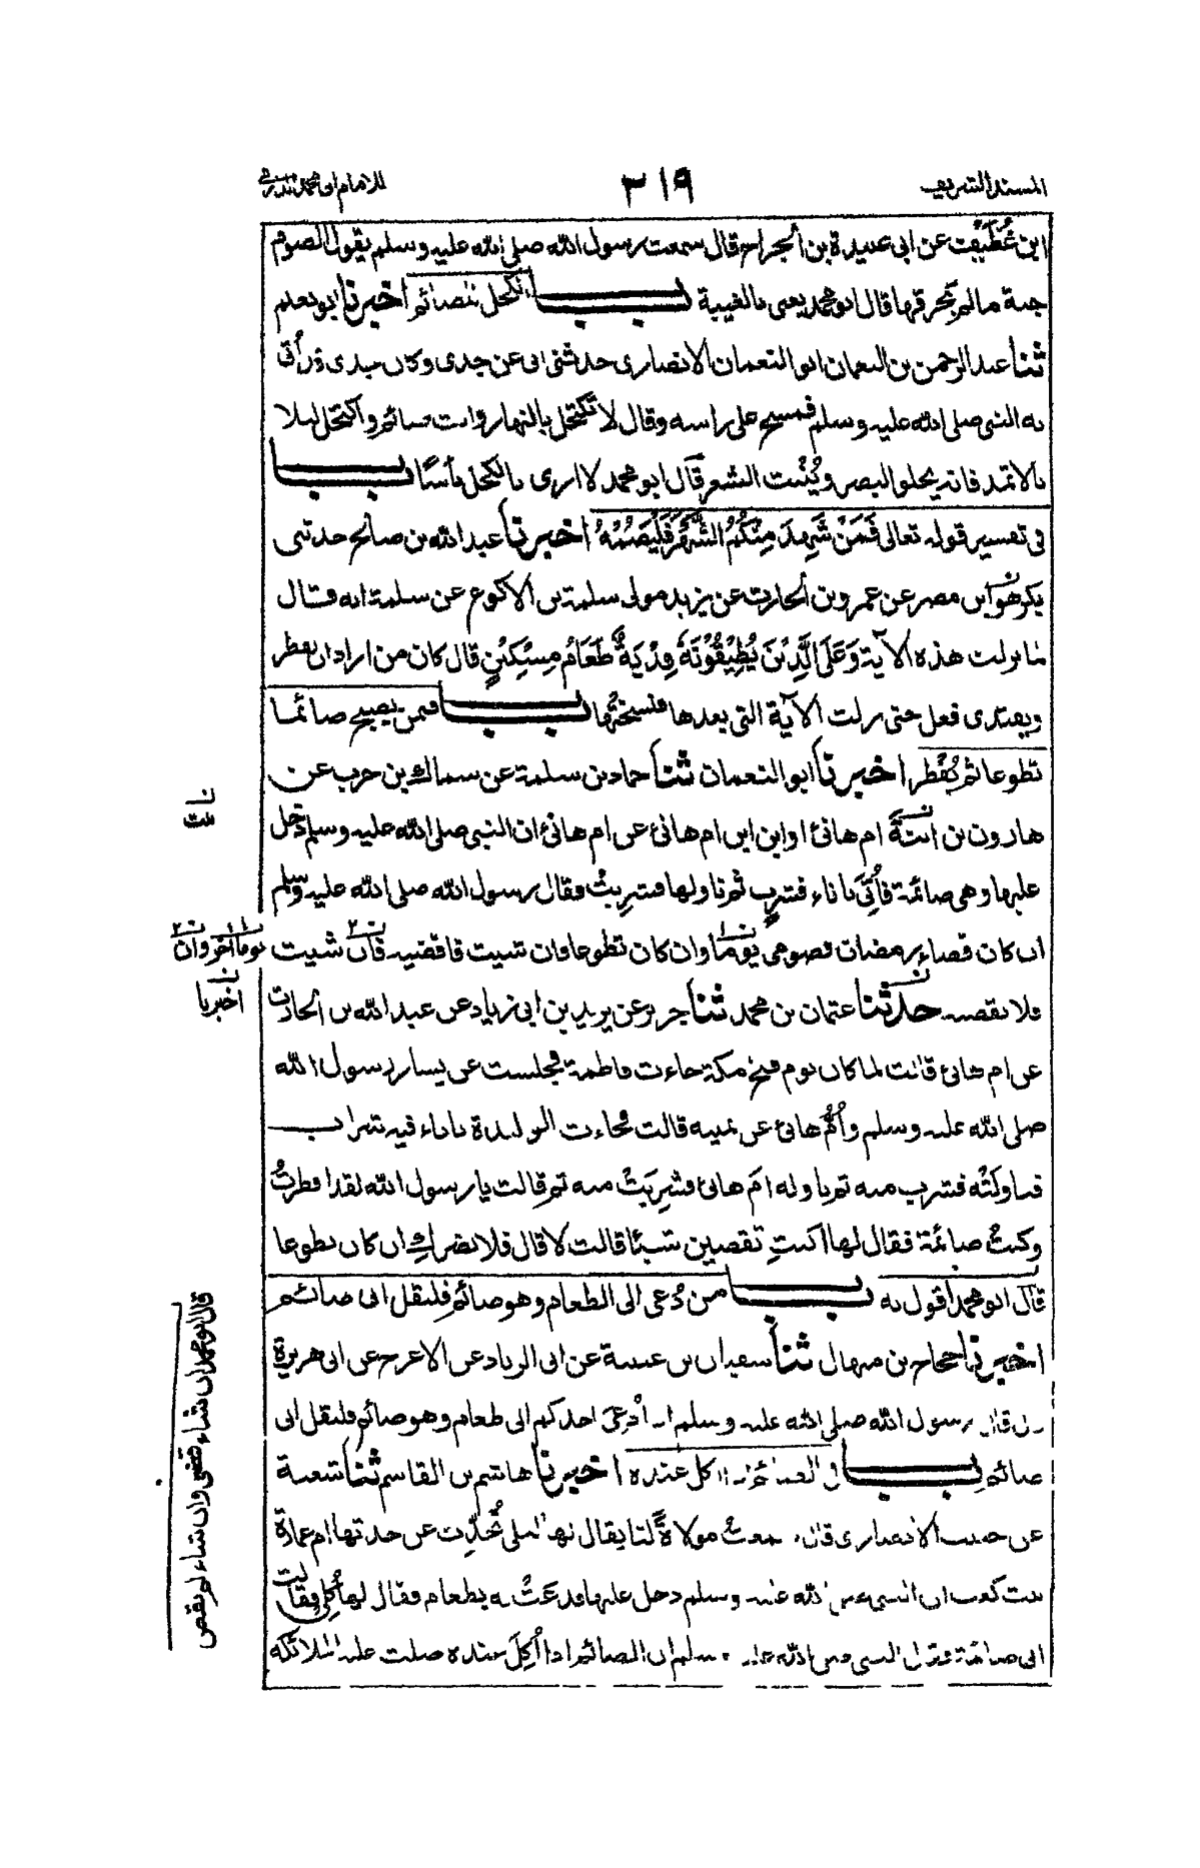 المسند الشريف
٣١٩
للامام ابى محمد الدارمى
ابن غُطَيْف عن ابى عبيدة بن الجراح قال سمعت رسول الله صلى الله عليه وسلم يقول الصوم
جنة مالم يخرقها قال ابو محمد يعنى بالغيبة باب الكحل للصائم اخبرنا ابو نعيم
ثنا عبد الرحمن بن النعمان ابو النعمان الانصارى حدثنى ابى عن جدى وكان جدى قد اُتى
به النبى صلى الله عليه وسلم فمسح على راسه وقال لا تكتحل بالنهار وانت صائم واكتحل ليلا
بالاثمد فانه يجلو البصر ويُنْبت الشعر قال ابو محمد لا ارى بالكحل بأسًا باب
فى تفسير قوله تعالى فَمَنْ شَهِدَ مِنْكُمُ الشَّهْرَ فَلْيَصُمْهُ اخبرنا عبد الله بن صالح حدثنى
بكر هو ابن مضر عن عمرو بن الحارث عن يزيد مولى سلمة بن الاكوع عن سلمة انه قال
لما نزلت هذه الآية وَعَلَى الَّذِيْنَ يُطِيْقُوْنَهٗ فِدْيَةٌ طَعَامُ مِسْكِيْنٍ قال كان من اراد ان يفطر
ويفتدى فعل حتى نزلت الآية التى بعدها فنسختها باب فيمن يصبح صائما
تطوعا ثم يُفْطر اخبرنا ابو النعمان ثنا حماد بن سلمة عن سماك بن حرب عن
هارون بن ابنة ام هانئ او ابن ابن ام هانئ عن ام هانئ ان النبى صلى الله عليه وسلم دخل
عليها وهى صائمة فاُتِىَ باناء فشرب ثم ناولها فشربتْ فقال رسول الله صلى الله عليه وسلم
ان كان قضاء رمضان فصومى يوما وان كان تطوعا فان شئت فاقضيه فان شئت
فلا تقضيه حدثنا عثمان بن محمد ثنا جرير عن يزيد بن ابى زياد عن عبد الله بن الحارث
عن ام هانئ قالت لما كان يوم فتح مكة جاءت فاطمة فجلست عن يسار رسول الله
صلى الله عليه وسلم واُمّ هانئ عن يمينه قالت فجاءت الوليدة باناء فيه شراب
فناولتْه فشرب منه ثم ناوله ام هانئ فشرِبَتْ منه ثم قالت يا رسول الله لقد افطرتُ
وكنتُ صائمة فقال لها اكنتِ تقضين شيئا قالت لا قال فلا يضرك ان كان تطوعا
قال ابو محمد اقول به باب من دُعى الى الطعام وهو صائم فليقل انى صائم
اخبرنا حجاج بن منهال ثنا سفيان بن عيينة عن ابى الزناد عن الاعرج عن ابى هريرة
ان قال رسول الله صلى الله عليه وسلم اذا دُعِىَ احدكم الى طعام وهو صائم فليقل انى
صائم باب فى الصائم اذا اكل عنده اخبرنا هاشم بن القاسم ثنا شعبة
عن حبيب الانصارى قال سمعتُ مولاةً لنا يقال لها ليلى تُحَدِّث عن جدتها ام عمارة
بنت كعب ان النبى صلى الله عليه وسلم دخل عليها فدعَتْ له بطعام فقال لها كُلِى فقالت
انى صائمة فقال النبى صلى الله عليه وسلم ان الصائم اذا اُكِلَ عنده صلت عليه الملائكة
ن
بنت
يوما آخر وان
ن
اخبرنا
قال ابو محمد ان شاء قضى وان شاء لم يقض